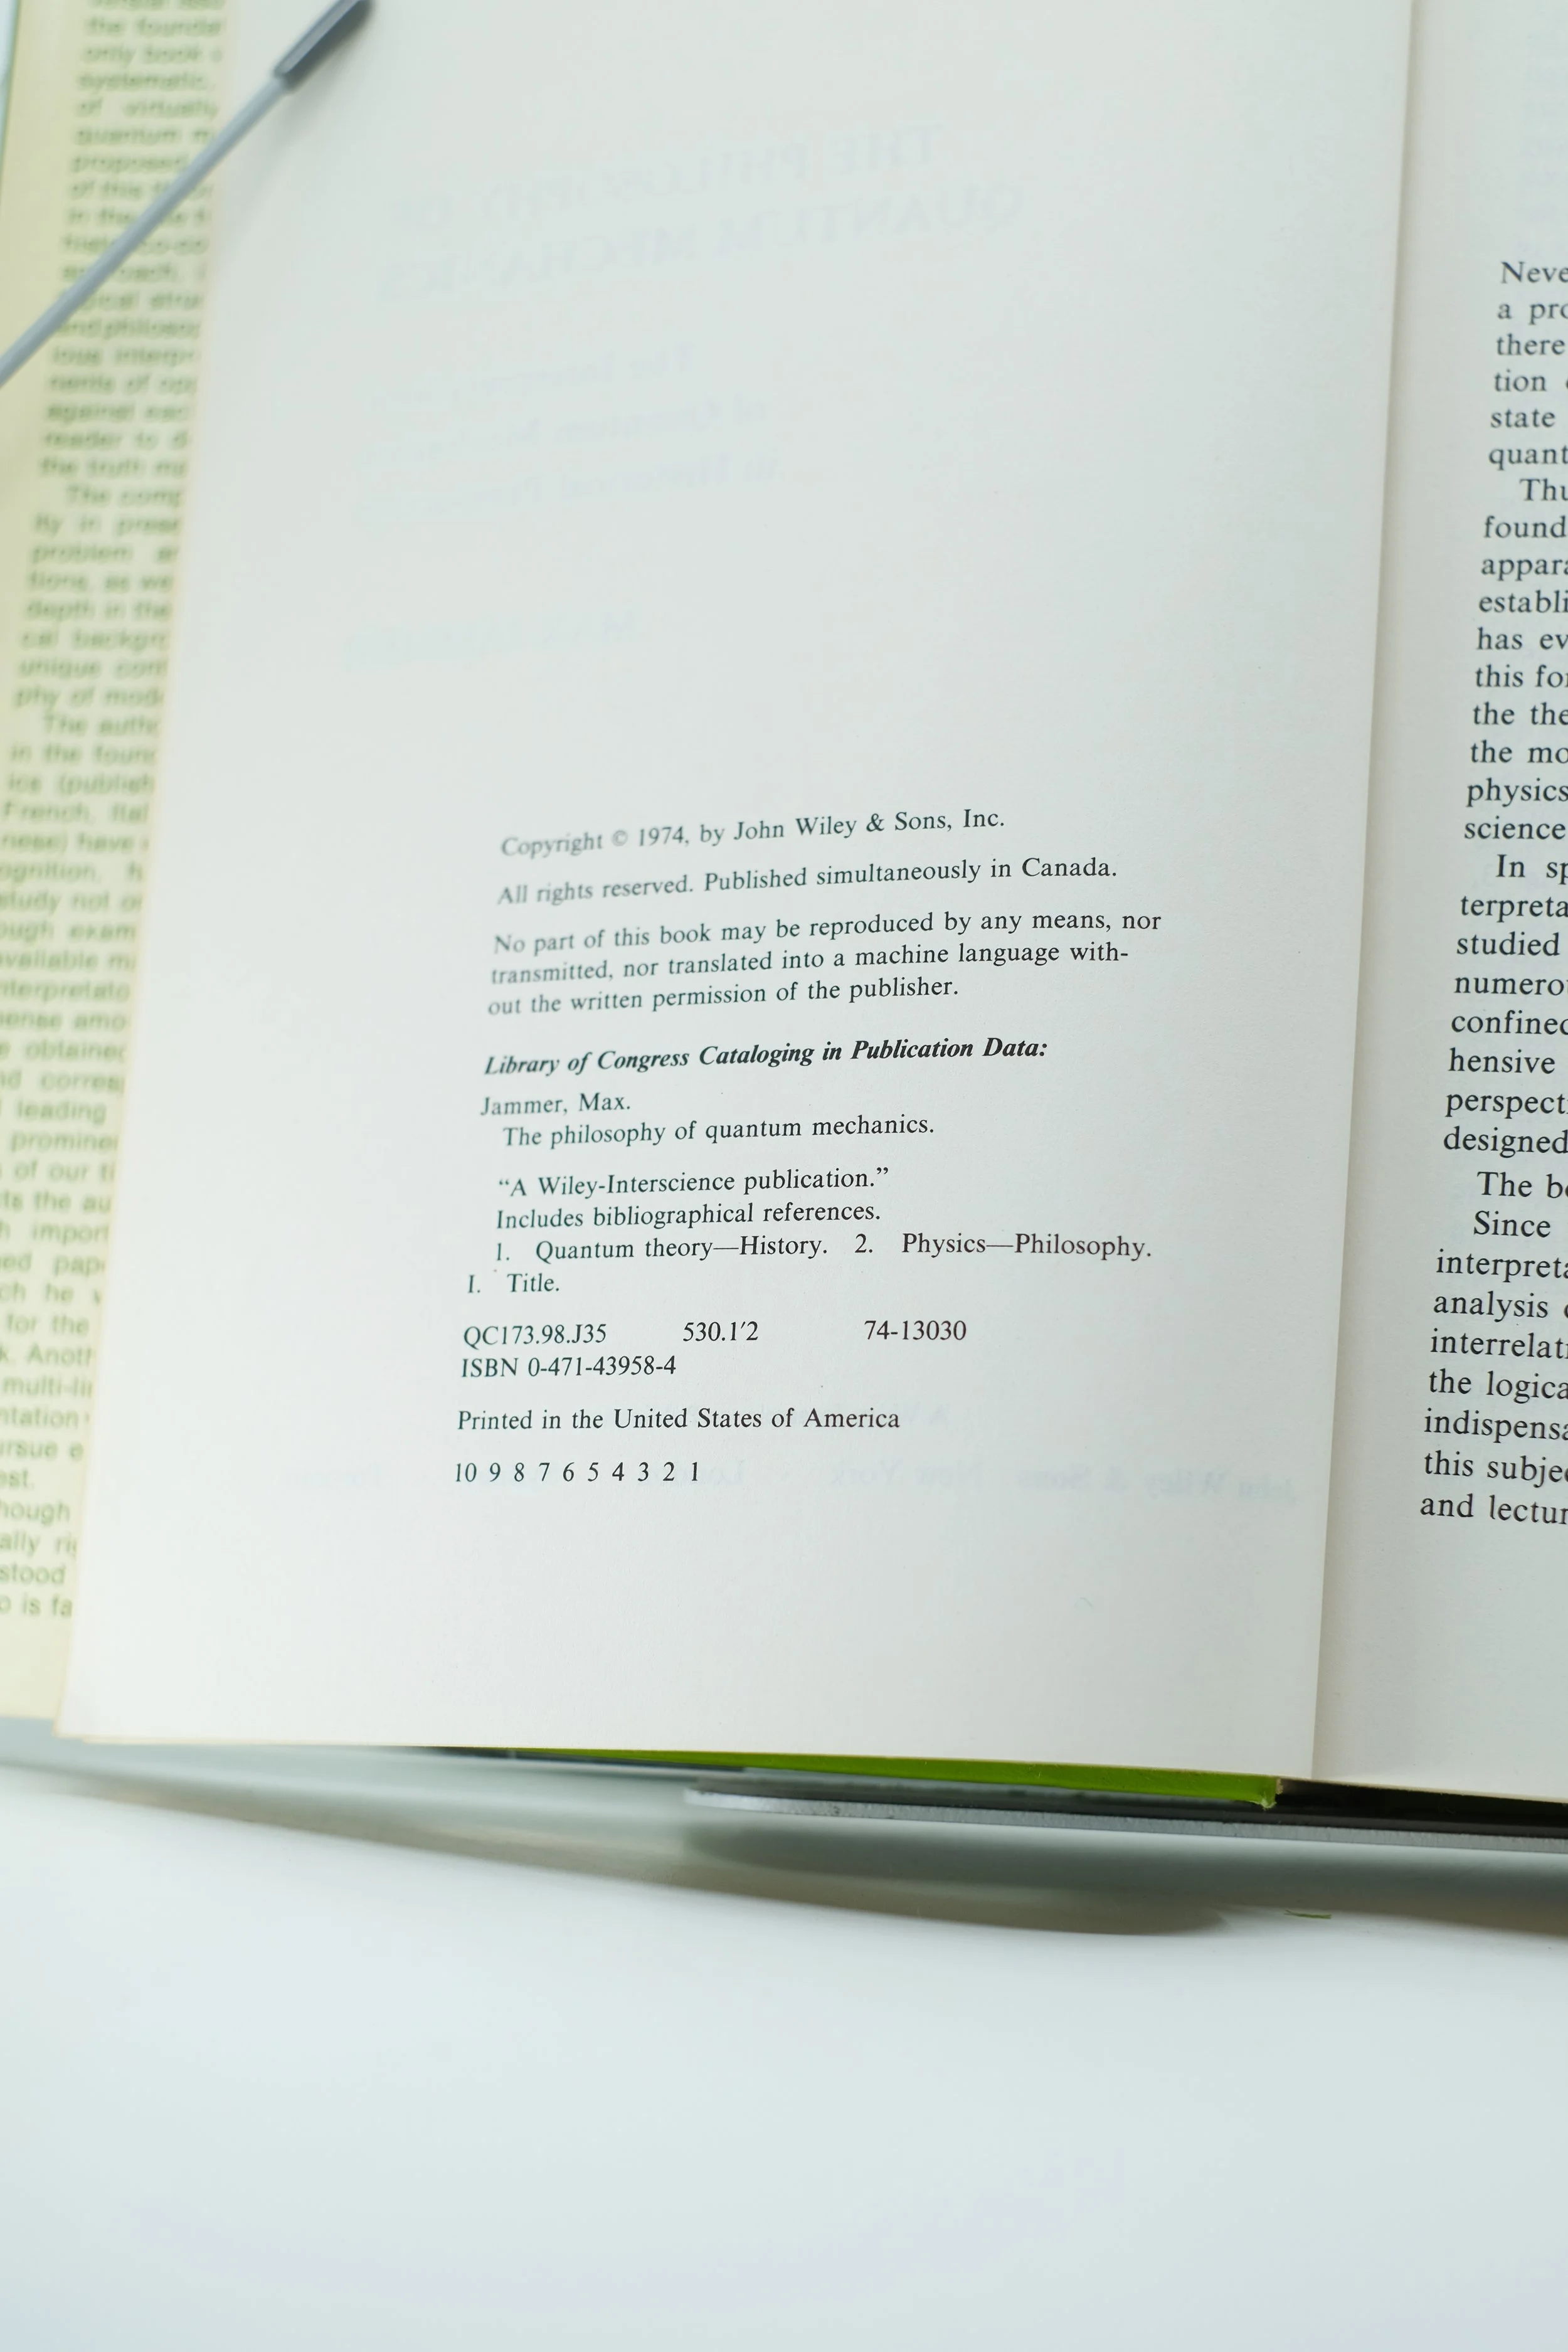 the founda
only book
systematic,
of virtually
quantum m
proposed
of this
in the
approach,
and philosop
ious interpr
ments of
against eac
reader to d
the truth
The comp
ity in prese
problem
tions, as we
depth in the
cal backgr
unique cont
phy of mode
The autho
in the foun
ics (publish
French, Ital
nese) have
ognition, h
study not
ough exam
available
nterpretatio
sense amo
e obtained
nd corres
leading
prominen
of our ti
ts the au
h import
ed pap
ch he
for the
k. Anoth
multi-li
ntation
ursue e
est.
hough
ally ri
stood
o is fa
THE PHILOSOPHY OF
QUANTUM MECHANICS
The
of Quantum
in Historical
Copyright © 1974, by John Wiley & Sons, Inc.
All rights reserved. Published simultaneously in Canada.
No part of this book may be reproduced by any means, nor
transmitted, nor translated into a machine language with-
out the written permission of the publisher.
Library of Congress Cataloging in Publication Data:
Jammer, Max.
The philosophy of quantum mechanics.
“A Wiley-Interscience publication.”
Includes bibliographical references.
1. Quantum theory—History. 2. Physics—Philosophy.
I. Title.
QC173.98.J35 530.1′2 74-13030
ISBN 0-471-43958-4
Printed in the United States of America
10 9 8 7 6 5 4 3 2 1
John Wiley & Sons New York
Neve
a pro
there
tion
state
quant
Thu
found
appara
establi
has ev
this for
the the
the mo
physics
science
In sp
terpreta
studied
numerou
confined
hensive
perspecti
designed
The bo
Since
interpreta
analysis
interrelati
the logica
indispensa
this subjec
and lectur